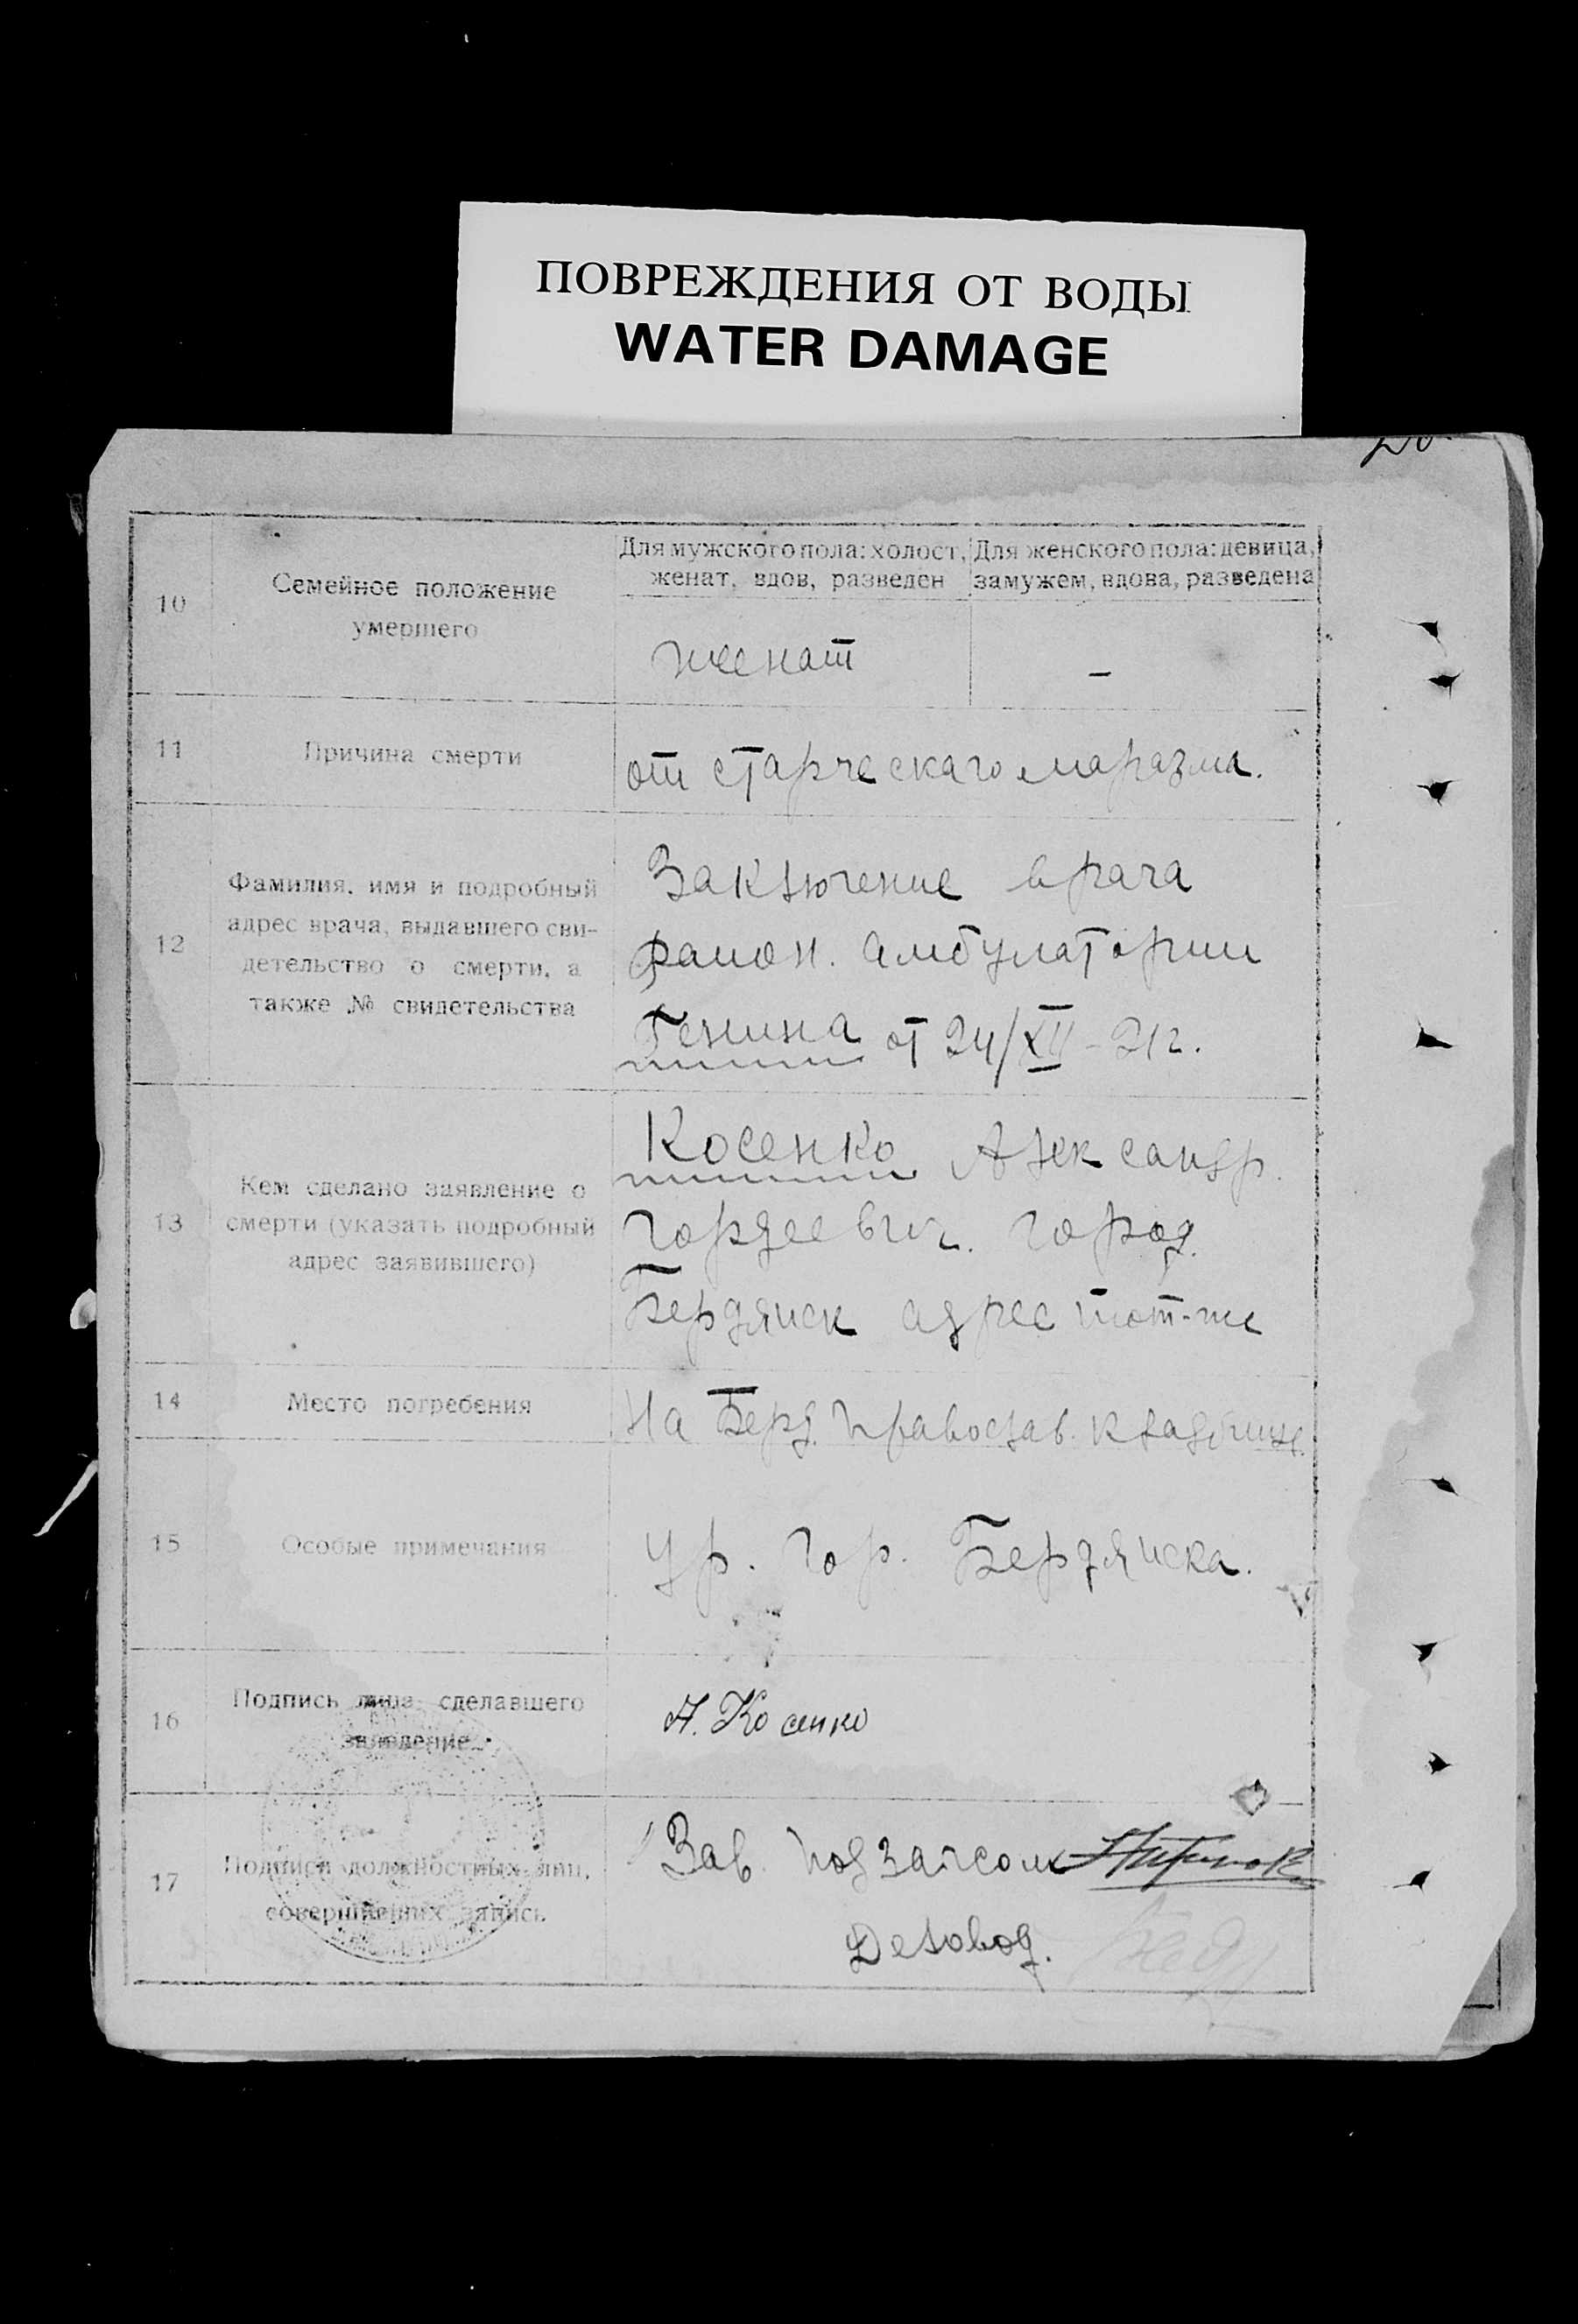 ПОВРЕЖДЕНИЯ ОТ ВОДЫ
WATER DAMAGE
10
Семейное положение
умершего
Для мужского пола: холост,
женат, вдов, разведен
Для женского пола: девица,
замужем, вдова, разведена
женат
–
11
Причина смерти
от старческаго маразма.
12
Фамилия, имя и подробный
адрес врача, выдавшего сви-
детельство о смерти, а
также № свидетельства
Заключение врача
район. амбулатории
Генина от 24/XII – 21 г.
13
Кем сделано заявление о
смерти (указать подробный
адрес заявившего)
Косенко Александр.
Гордеевич. город.
Бердянск адрес тот-же
14
Место погребения
На Берд. православ. кладбище.
15
Особые примечания
Ур. гор. Бердянска.
16
Подпись лица, сделавшего
заявление
А. Косенко
17
Подписи должностных лиц,
совершивших запись.
Зав. подзагсом
Деловод.